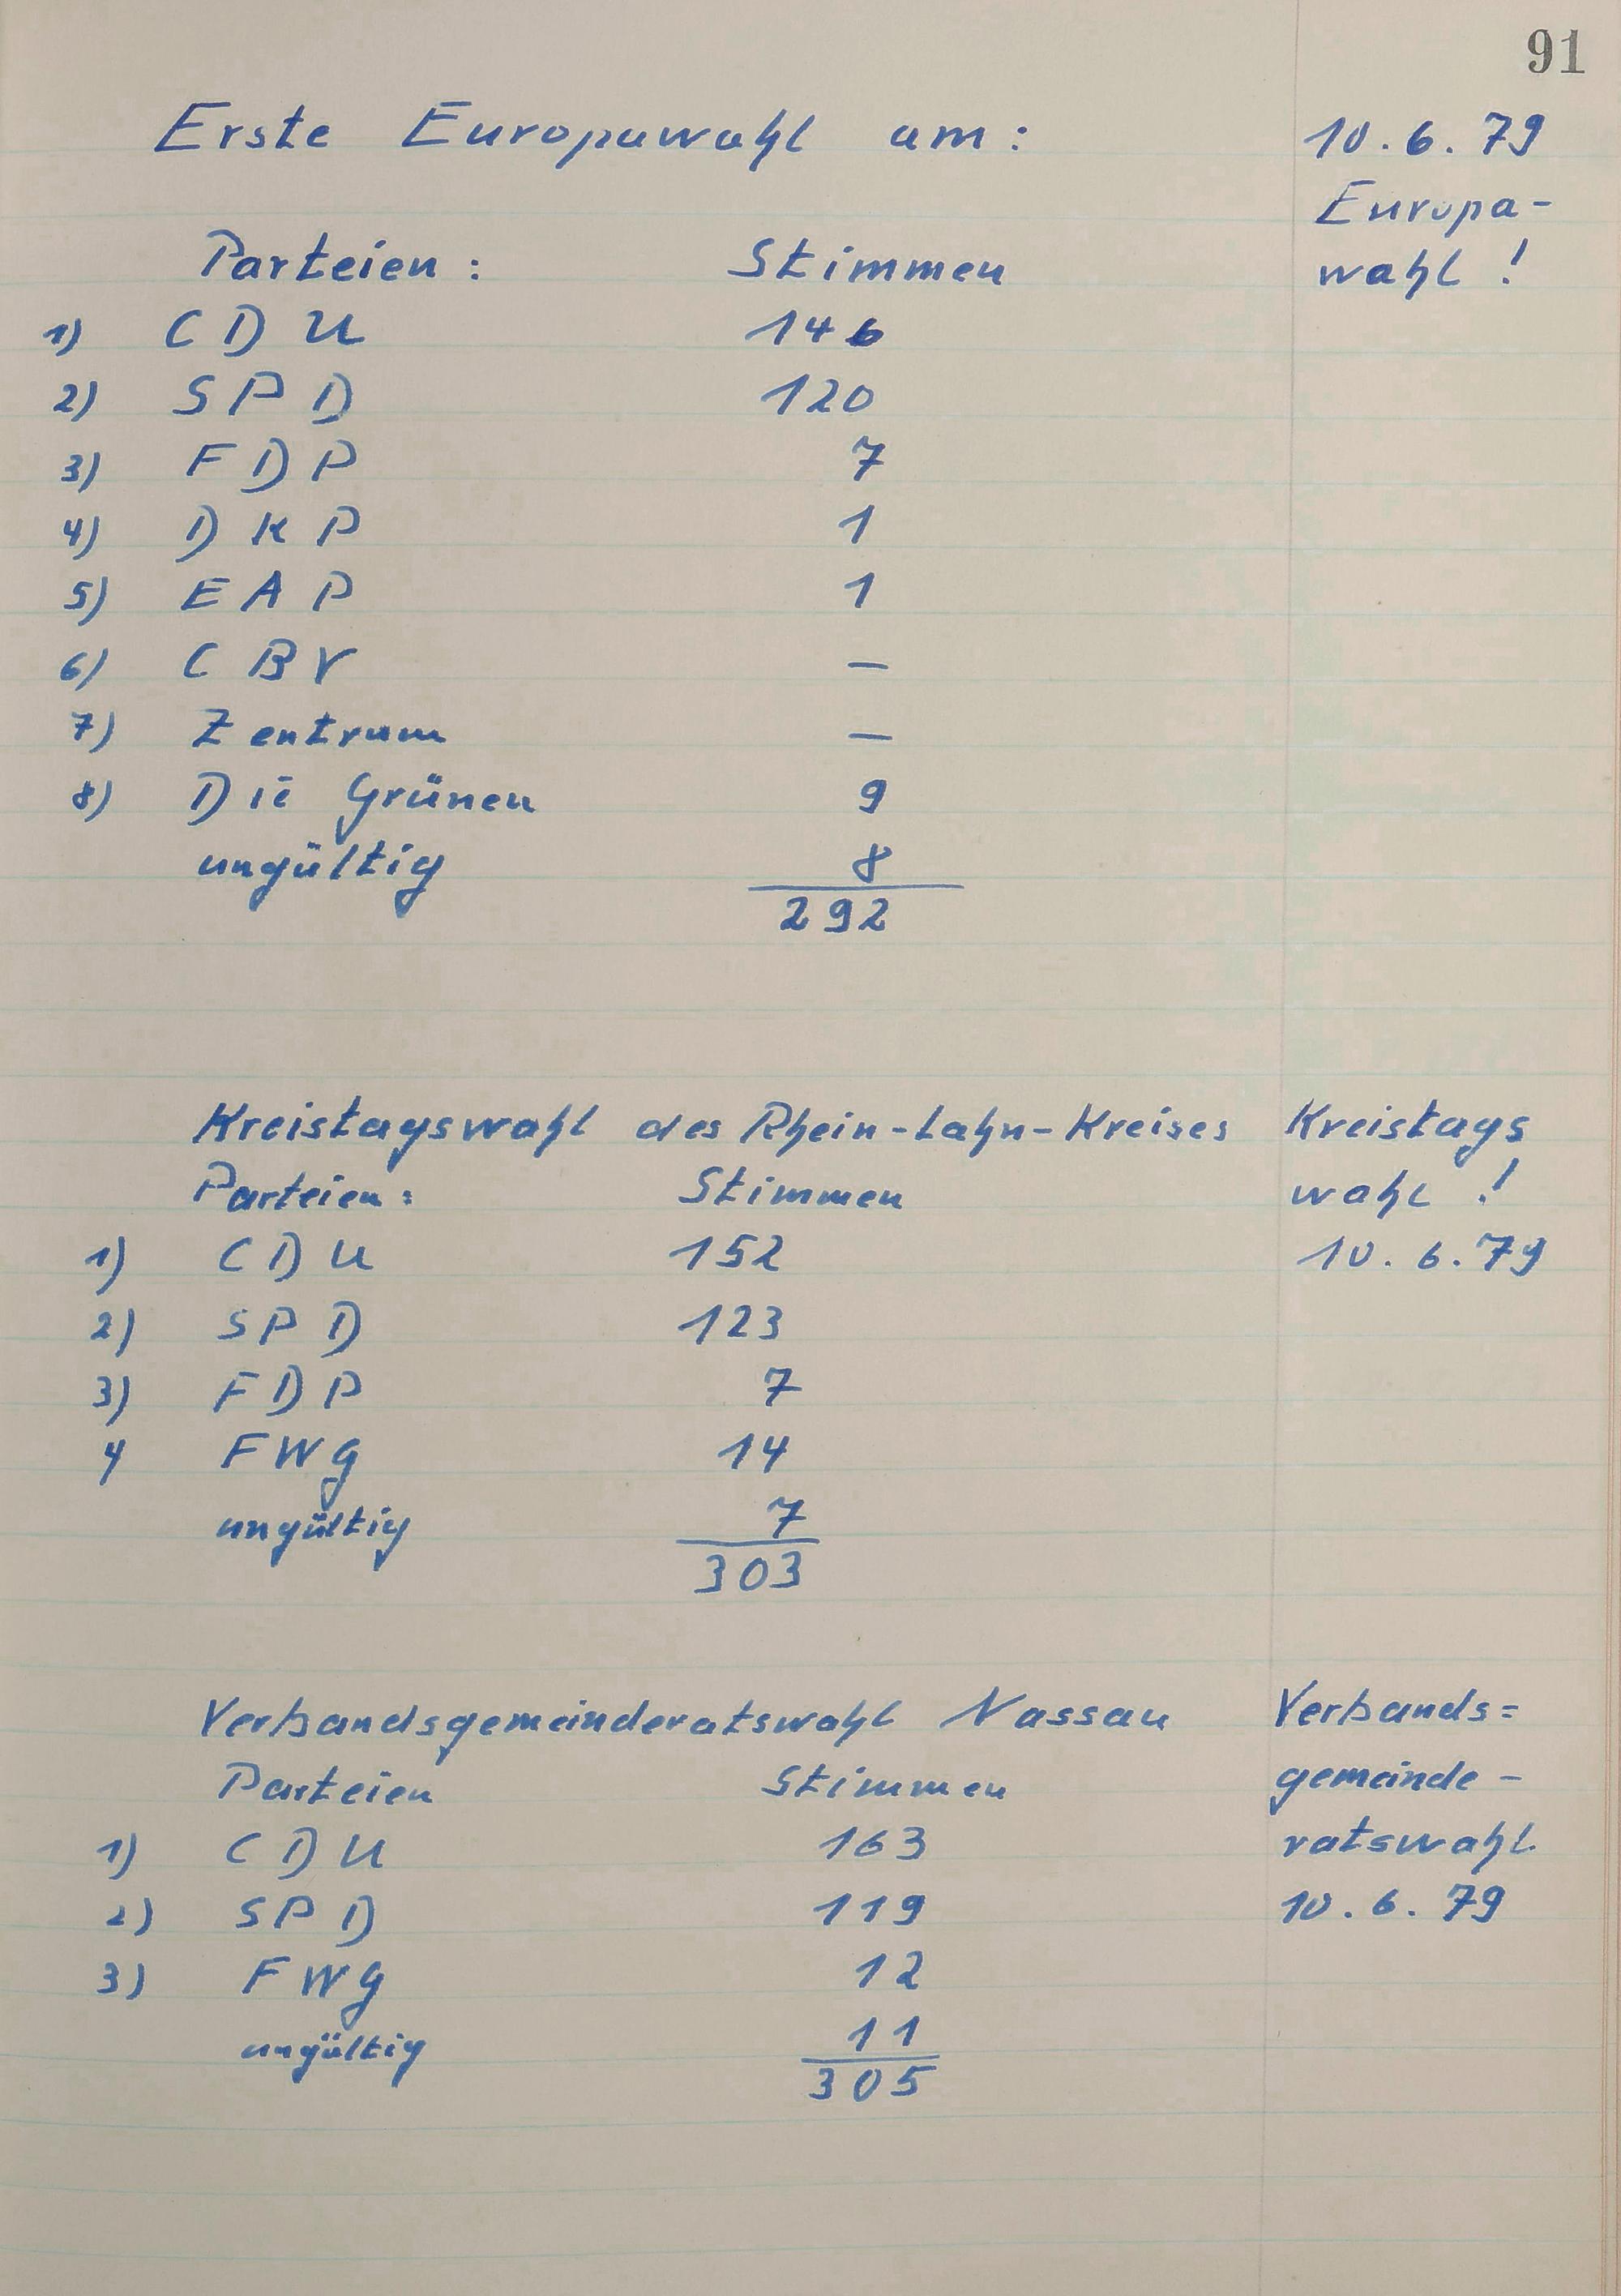 91
Erste Europawahl am: 10.6.79
Europa-
Parteien: Stimmen wahl!
1) CDU 146
2) SPD 120
3) FDP 7
4) DKP 1
5) EAP 1
6) CBV —
7) Zentrum —
8) Die Grünen 9
ungültig 8
292
Kreistagswahl des Rhein-Lahn-Kreises Kreistags
Parteien: Stimmen wahl!
1) CDU 152 10.6.79
2) SPD 123
3) FDP 7
4 FWG 14
ungültig 7
303
Verbandsgemeinderatswahl Nassau Verbands=
Parteien Stimmen gemeinde-
1) CDU 163 ratswahl
2) SPD 119 10.6.79
3) FWG 12
ungültig 11
305